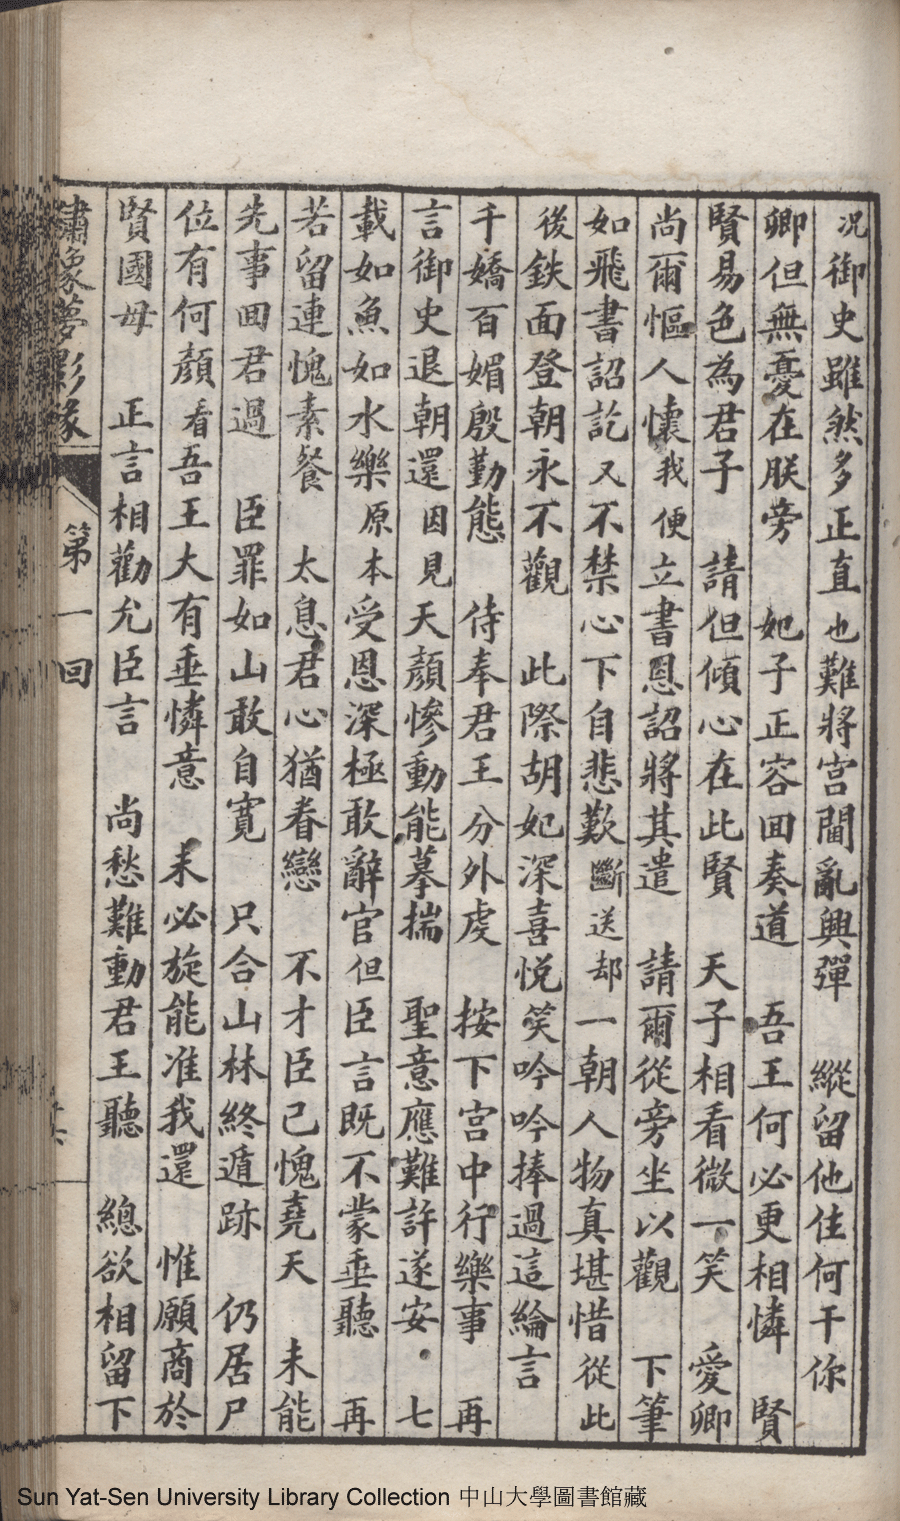 况御史雖然多正直也難將宮閫亂興彈　縱留他住何干你
卿但無憂在朕旁　妃子正容囬奏道　吾王何必更相憐　賢
賢易色為君子　請但傾心在此賢　天子相看微一笑　愛卿
尚爾慪人懷我便立書恩詔將其遣　請爾從旁坐以觀　下筆
如飛書詔訖又不禁心下自悲歎斷送却一朝人物真堪惜從此
後鉄面登朝永不觀　此際胡妃深喜悦笑吟吟捧過這綸言
千嬌百媚殷勤態　侍奉君王分外虔　按下宮中行樂事　再
言御史退朝還因見天顏慘動能摹揣　聖意應難許遂安．七
載如魚如水樂原本受恩深極敢辭官但臣言既不蒙垂聽　再
若留連愧素餐　太息君心猶眷戀　不才臣已愧堯天　未能
先事囬君過　臣罪如山敢自寬　只合山林終遁跡　仍居尸
位有何顏看吾王大有垂憐意　未必旋能准我還　惟願商於
賢國母　正言相勸允臣言　尚愁難動君王聽　總欲相留下
繡像夢影緣　第一回
Sun Yat-Sen University Library Collection 中山大學圖書館藏